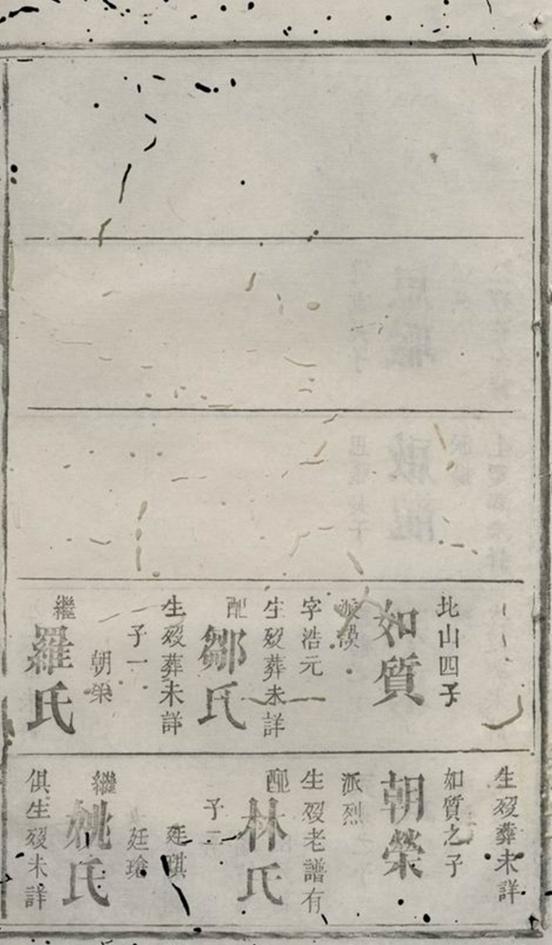 北山四子
如質
派謨
字浩元
生殁葬未詳
配
鄒氏
生殁葬未詳
子一
朝榮
繼
羅氏
生殁葬未詳
如質之子
朝榮
派烈
生殁老譜有
配
林氏
子二
廷琪
廷瑲
繼
姚氏
俱生殁未詳